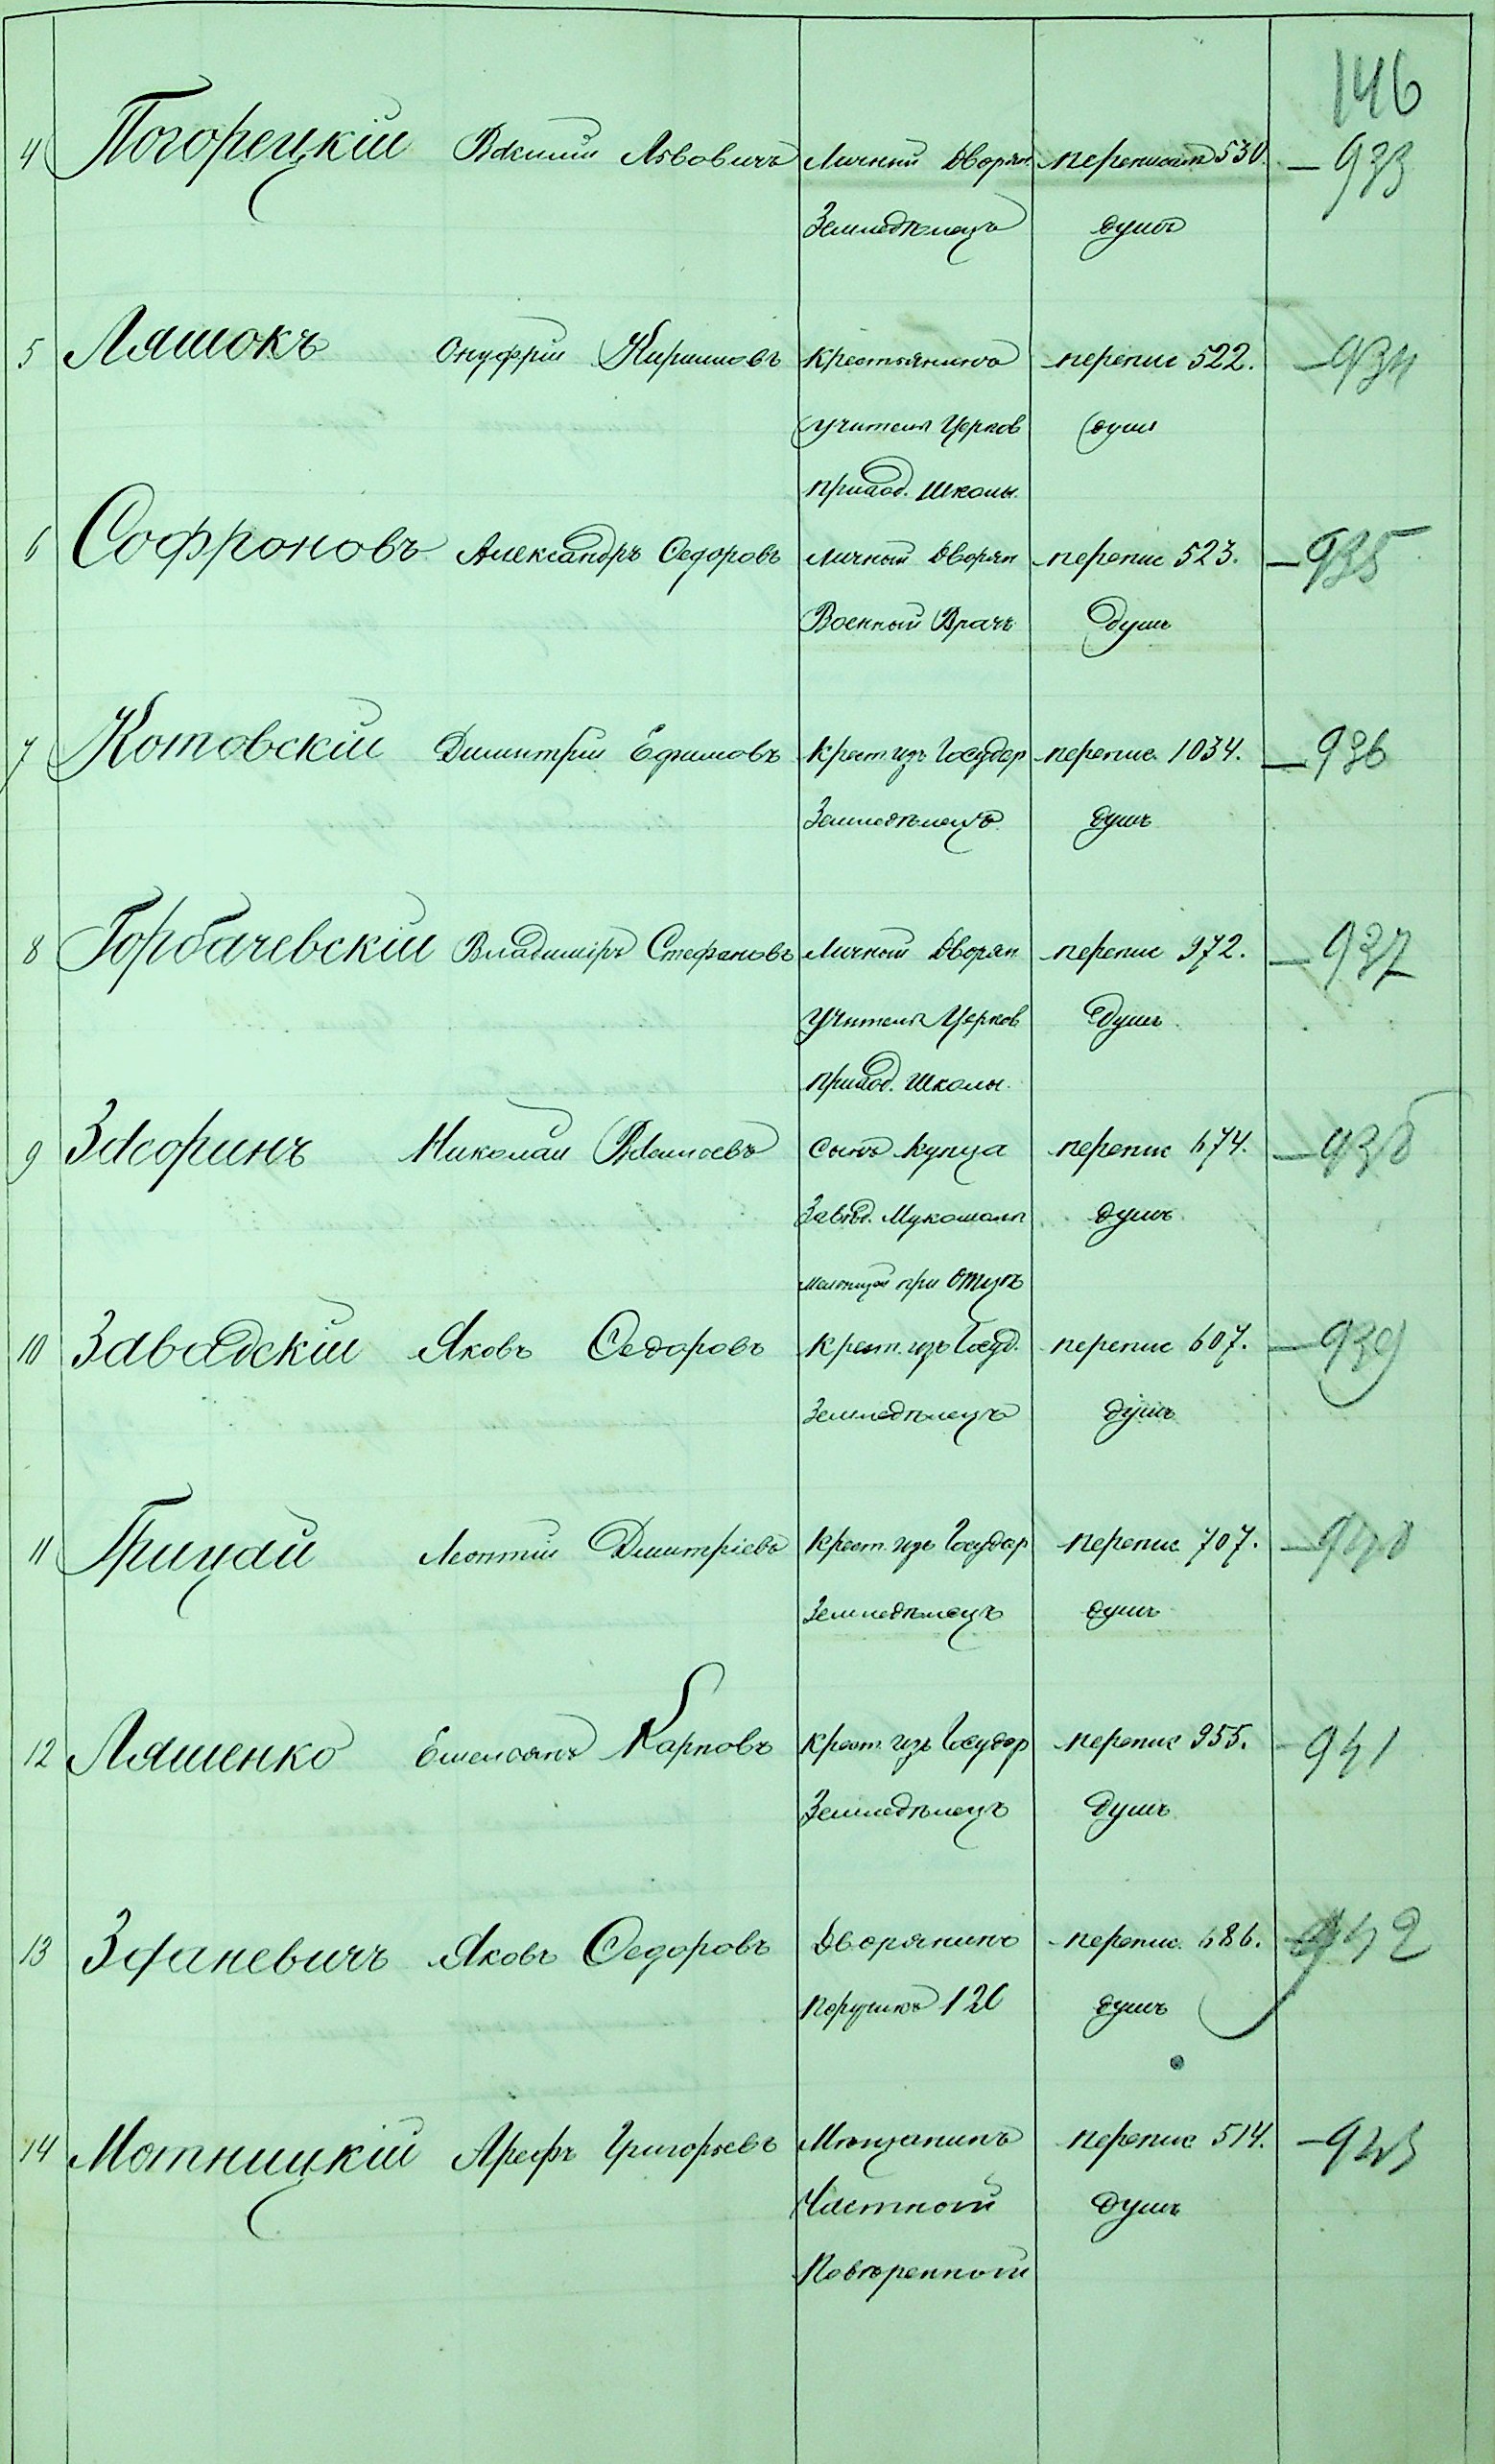 146
4 Погорецкій Василій Львовичъ Личный Дворян. переписалъ 530. — 933
Земледѣлецъ душъ
5 Ляшокъ Онуфрій Кирилловъ Крестьянинъ перепис 522. — 934
Учитель Церков душъ
приход. Школы.
6 Софроновъ Александръ Ѳедоровъ Личный Дворян перепис 523. — 935
Военный Врачъ душъ
7 Котовскій Димитрій Ефимовъ Крест. изъ Государ перепис. 1034. — 936
Земледѣлецъ душъ
8 Горбачевскій Владиміръ Стефановъ Личный Дворян перепис 972. — 937
Учитель Церков душъ
приход. Школы.
9 Засоринъ Николай Сынъ Купца перепис 674. — 938
Завѣд. Мукомольн душъ
мельницей при
10 Завадскій Яковъ Ѳедоровъ Крест. изъ Госуд. перепис 607. — 939
Земледѣлецъ душъ
11 Грицай Леонтій Димитріевъ Крест. изъ Государ перепис 707. — 940
Земледѣлецъ душъ
12 Ляшенко Емельянъ Карповъ Крест. изъ Государ перепис 955. — 941
Земледѣлецъ душъ
13 Зданевичъ Яковъ Ѳедоровъ Дворянинъ перепис. 686. — 942
Поручикъ 120 душъ
14 Мотницкій Арефъ Григорьевъ Мѣщанинъ перепис 514. — 943
Частный душъ
Повѣренный